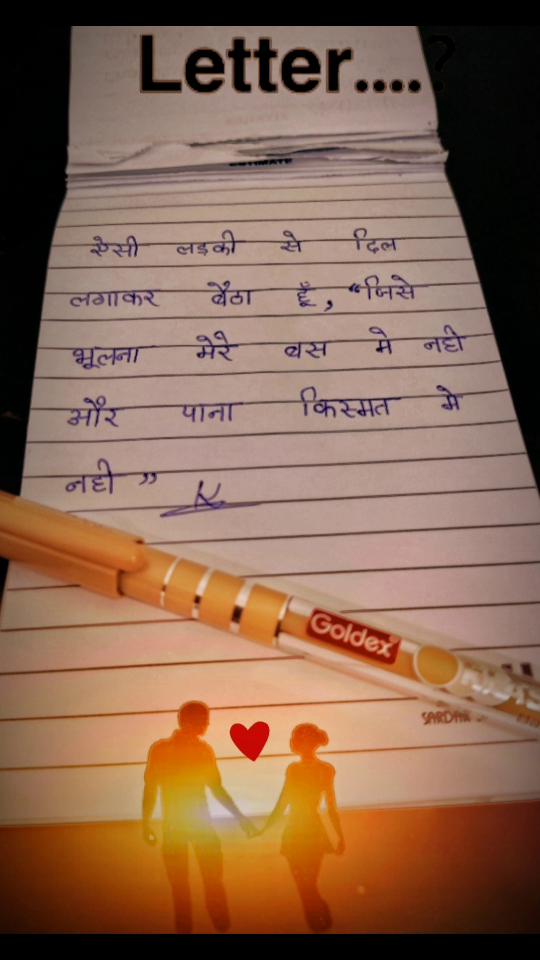 Letter....?
ESTIMATE
ऐसी लड़की से दिल
लगाकर बैठा हूँ, “जिसे
भूलना मेरे बस मे नही
और पाना किस्मत मे
नही ”
Goldex
SARDAR